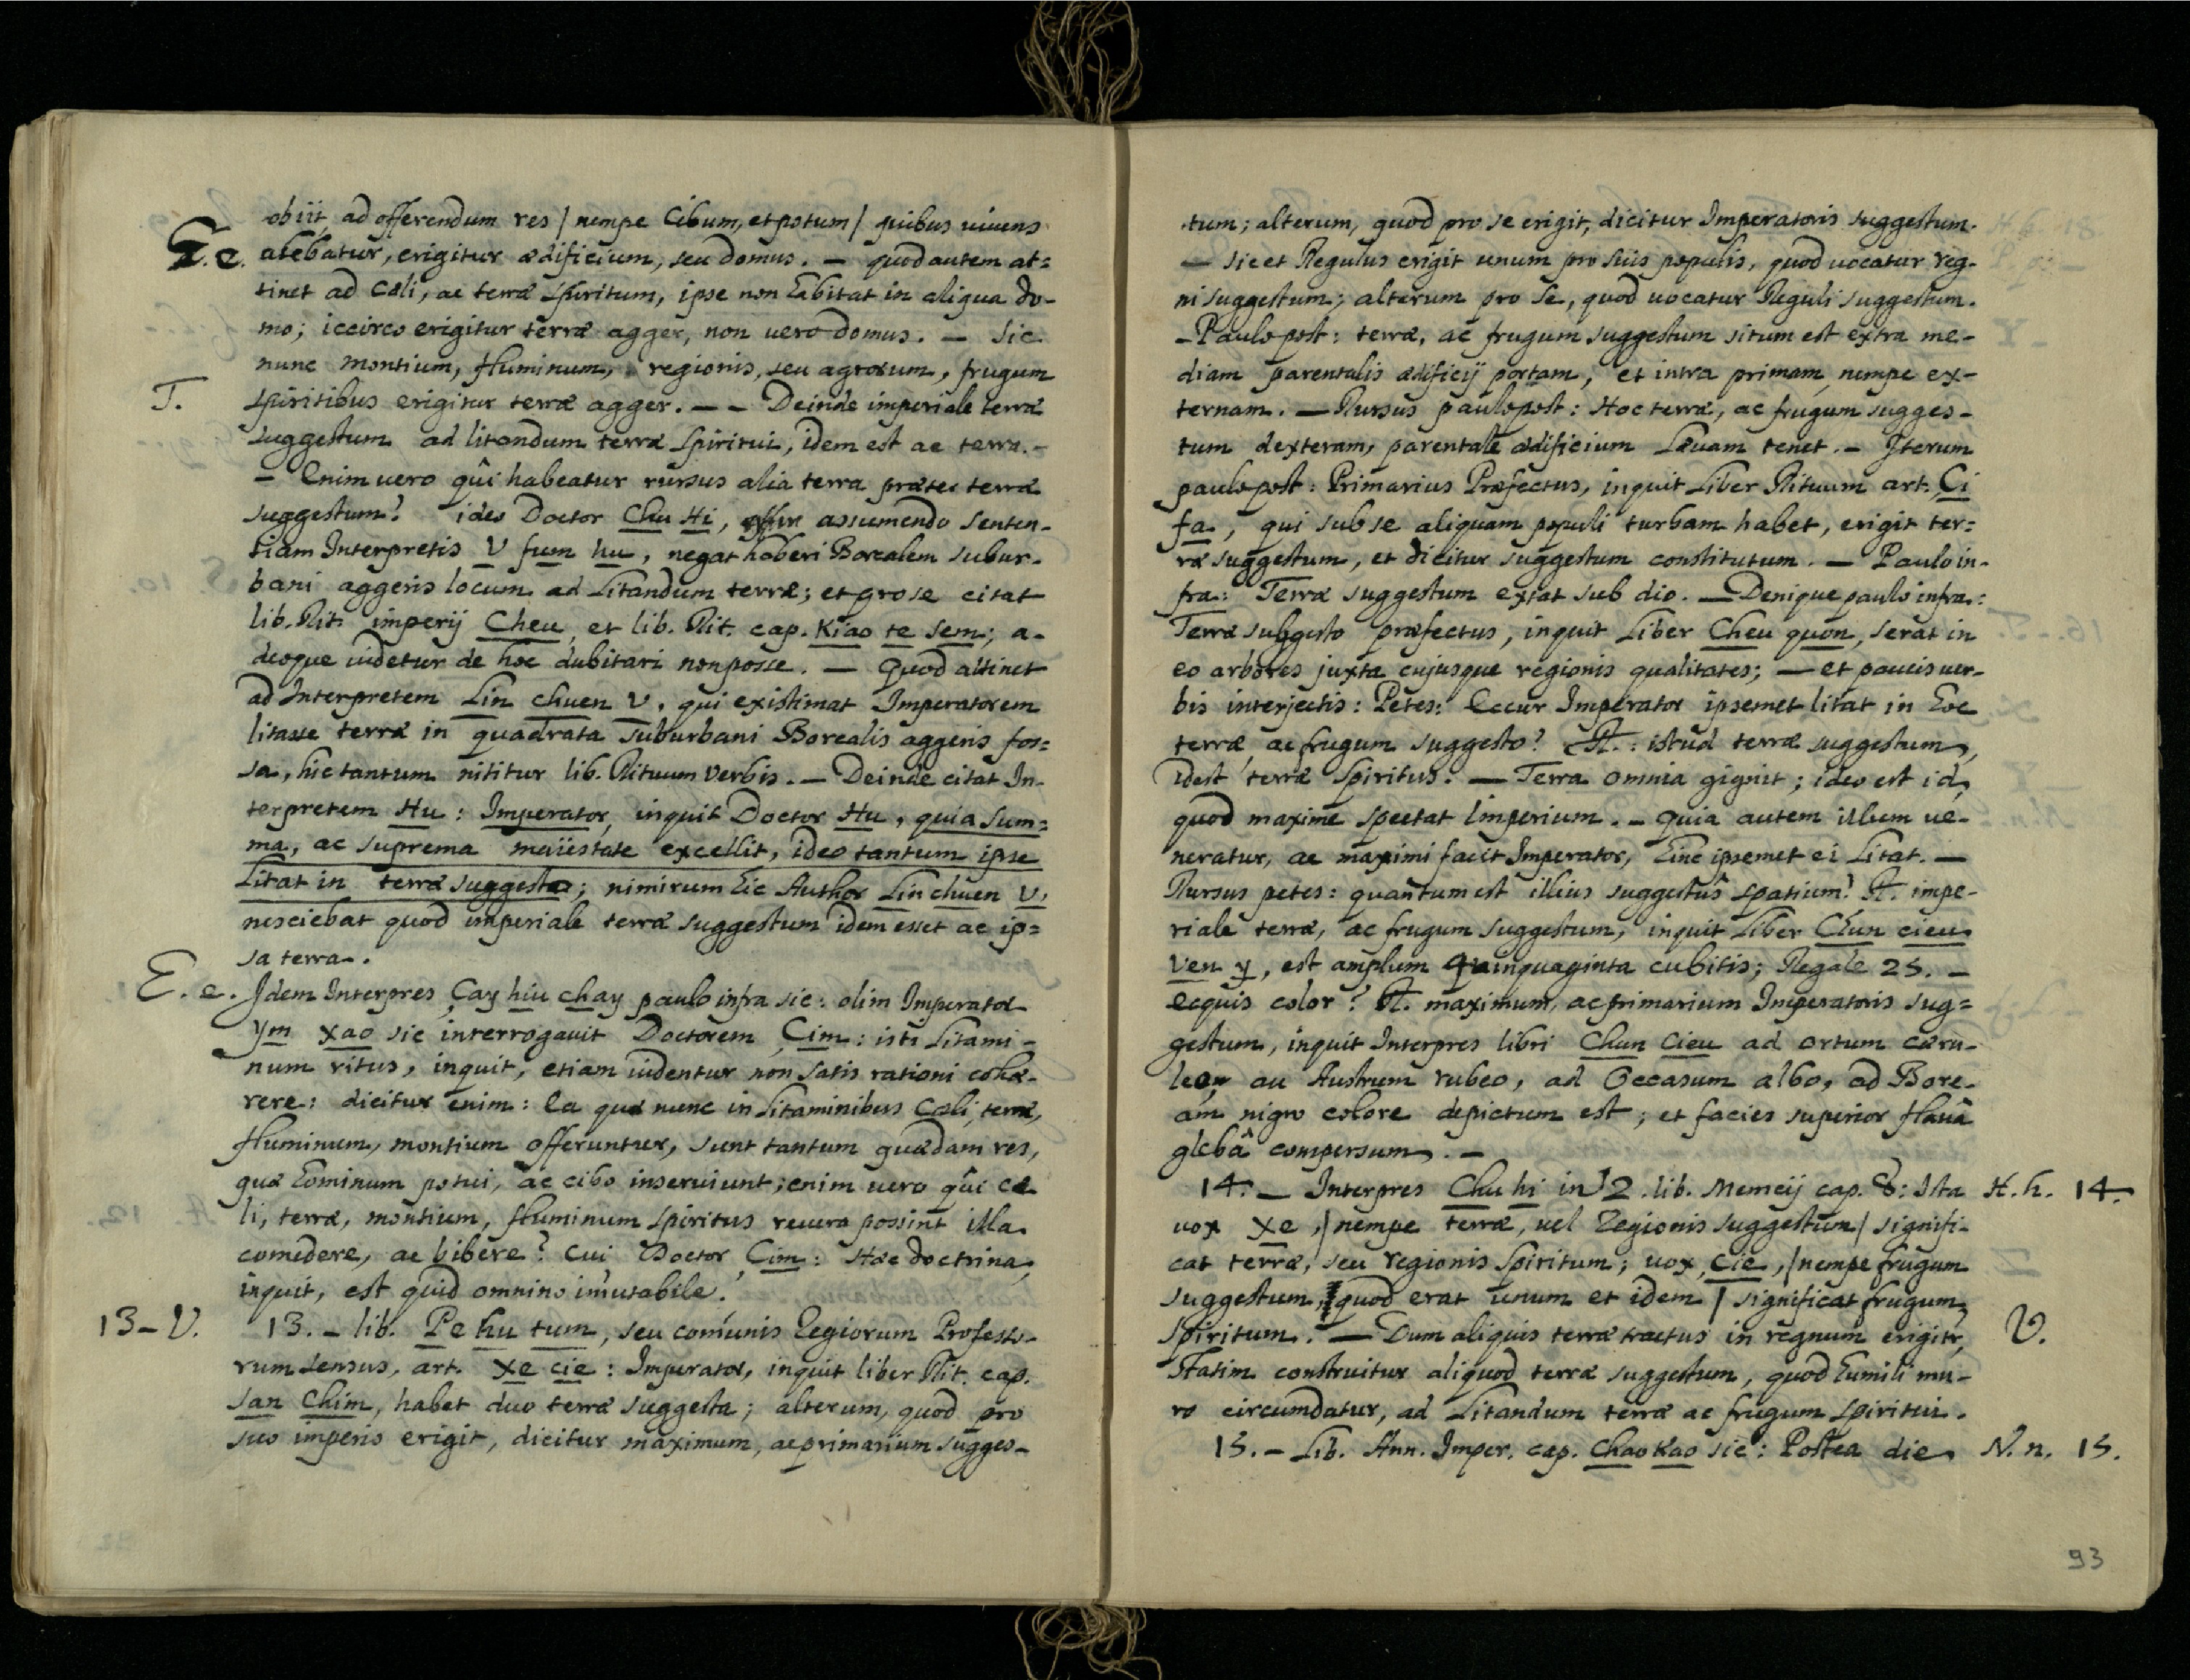 obiit, ad offerendum res / nempe Cibum, et potum / quibus vivens
E. e. alebatur, erigitur ædificium, seu domus. — quod autem at=
tinet ad Cæli, ac terræ Spiritum, ipse non habitat in aliqua do-
mo; iccirco erigitur terræ agger, non vero domus. — Sic
nunc montium, fluminum, regionis, seu agrorum, frugum
T. Spiritibus erigitur terræ agger. — — Deinde imperiale terræ
suggestum ad litandum terræ Spiritui, idem est ac terra. —
— Enim vero quî habeatur rursus alia terra præter terræ
suggestum? ideo Doctor Chu Hi, assumendo Senten-
tiam Interpretis V fum hu, negat haberi Borealem subur-
bani aggeris locum ad Litandum terræ; et pro se citat
lib. Rit. imperij Cheu, et lib. Rit. cap. Kiao te Sem; a-
deoque videtur de hoc dubitari non posse. — Quod attinet
ad Interpretem Lin chuen V, qui existimat Imperatorem
litasse terræ in quadrata suburbani Borealis aggeris fos=
sa, hic tantum nititur lib. Rituum verbis. — Deinde citat In-
terpretem Hu: Imperator, inquit Doctor Hu, quia sum=
ma, ac suprema maiestate excellit, ideo tantum ipse
Litat in terræ suggesto; nimirum hic Author Lin chuen V,
nesciebat quod imperiale terræ suggestum idem esset ac ip=
sa terra.
E. e. Idem Interpres Çay hiu chay paulo infra sic: olim Imperator
ym xao sic interrogavit Doctorem Çim: isti Litami-
num ritus, inquit, etiam videntur non satis rationi cohæ-
rere: dicitur enim: Ea quæ nunc in Litaminibus Cæli, terræ,
fluminum, montium offeruntur, sunt tantum quædam res,
quæ hominum potui, ac cibo inserviunt; enim vero quî cæ
li, terræ, montium, fluminum Spiritus revera possint illa
comedere, ac bibere? Cui Doctor Çim: Hæc doctrina,
inquit, est quid omnino imutabile.
13 - V. 13. — lib. Pe hu tum, seu comunis Regiorum Professo-
rum sensus, art. Xe cie: Imperator, inquit liber Rit. cap.
San Chim, habet duo terræ suggesta; alterum, quod pro
suo imperio erigit, dicitur maximum, ac primarium sugges-
tum; alterum, quod pro se erigit, dicitur Imperatoris suggestum.
— Sic et Regulus erigit unum pro suis populis, quod vocatur reg-
ni suggestum; alterum pro se, quod vocatur Reguli suggestum.
— Paulo post: terræ, ac frugum suggestum situm est extra me-
diam parentalis ædificij portam, et intra primam, nempe ex-
ternam. — Rursus paulo post: Hoc terræ, ac frugum sugges-
tum dexteram, parentale ædificium Lævam tenet. — Iterum
paulo post: Primarius Præfectus, inquit Liber Rituum art. Çi
fa, qui sub se aliquam populi turbam habet, erigit ter=
ræ suggestum, et dicitur suggestum constitutum. — Paulo in-
fra: Terræ suggestum extat sub dio. — Denique paulo infra:
Terræ subgesto præfectus, inquit Liber Cheu quon, serat in
eo arbores juxta cujusque regionis qualitates; — et paucis ver-
bis interjectis: Petes: Eccur Imperator ipsemet litat in hoc
terræ, ac frugum suggesto? R.: istud terræ suggestum,
idest terræ Spiritus. — Terra omnia gignit; ideo est id,
quod maxime spectat Imperium. — Quia autem illum ve-
neratur, ac maximi facit Imperator, hinc ipsemet ei Litat. —
Rursus petes: quantum est illius suggestûs spatium? R. impe-
riale terræ, ac frugum suggestum, inquit Liber Chun cieu
ven y, est amplum quinquaginta cubitis; Regale 25. —
ecquis color? R. maximum, ac primarium Imperatoris sug=
gestum, inquit Interpres libri Chun Cieu ad ortum cæru-
leo, au Austrum rubeo, ad Occasum albo, ad Bore-
am nigro colore depictum est; et facies superior flavâ
glebâ compersum. —
14. — Interpres Chu hi in 2. lib. Memcij cap. 8: Ista H. h. 14.
vox Xe, / nempe terræ, vel Regionis suggestum / signifi-
cat terræ, seu regionis Spiritum; vox, Cie, / nempe frugum
suggestum, quod erat unum et idem / significat frugum
Spiritum. — Dum aliquis terræ tractus in regnum erigitr, V.
Statim construitur aliquod terræ suggestum, quod humili mu-
ro circumdatur, ad Litandum terræ ac frugum Spiritui.
15. — Lib. Ann. Imper. cap. Chao Kao sic: Postea die N. n. 15.
93